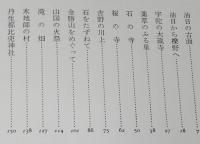 油日の古面 7
油日から櫟野へ 18
宇陀の大蔵寺 27
薬草のふる里 38
石の寺 50
桜の寺 62
吉野の川上 75
石をたずねて 88
金勝山をめぐって 101
山国の火祭 114
滝の畑 127
木地師の村 138
丹生都比売神社 150